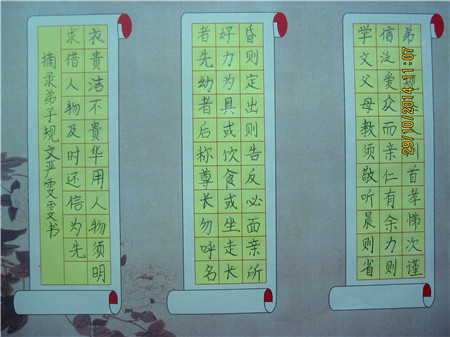 弟 规 首孝悌次谨
信泛爱众而亲仁有余力则
学文父母教须敬听晨则省
昏则定出则告反必面亲所
好力为具或饮食或坐走长
者先幼者后称尊长勿呼名
衣贵洁不贵华用人物须明
求借人物及时还信为先
摘录弟子规文严雯雯书
28/10/2014 11:07